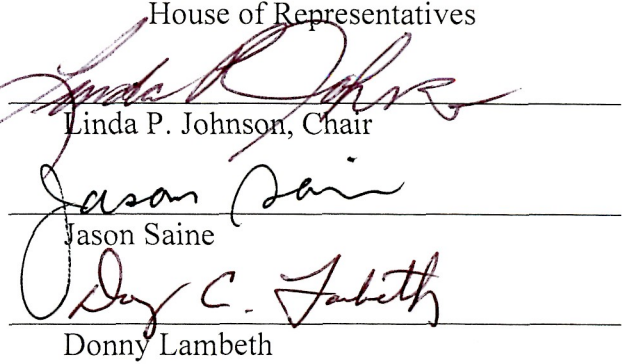 House of Representatives
Linda P. Johnson
Linda P. Johnson, Chair
Jason Saine
Jason Saine
Donny C. Lambeth
Donny Lambeth